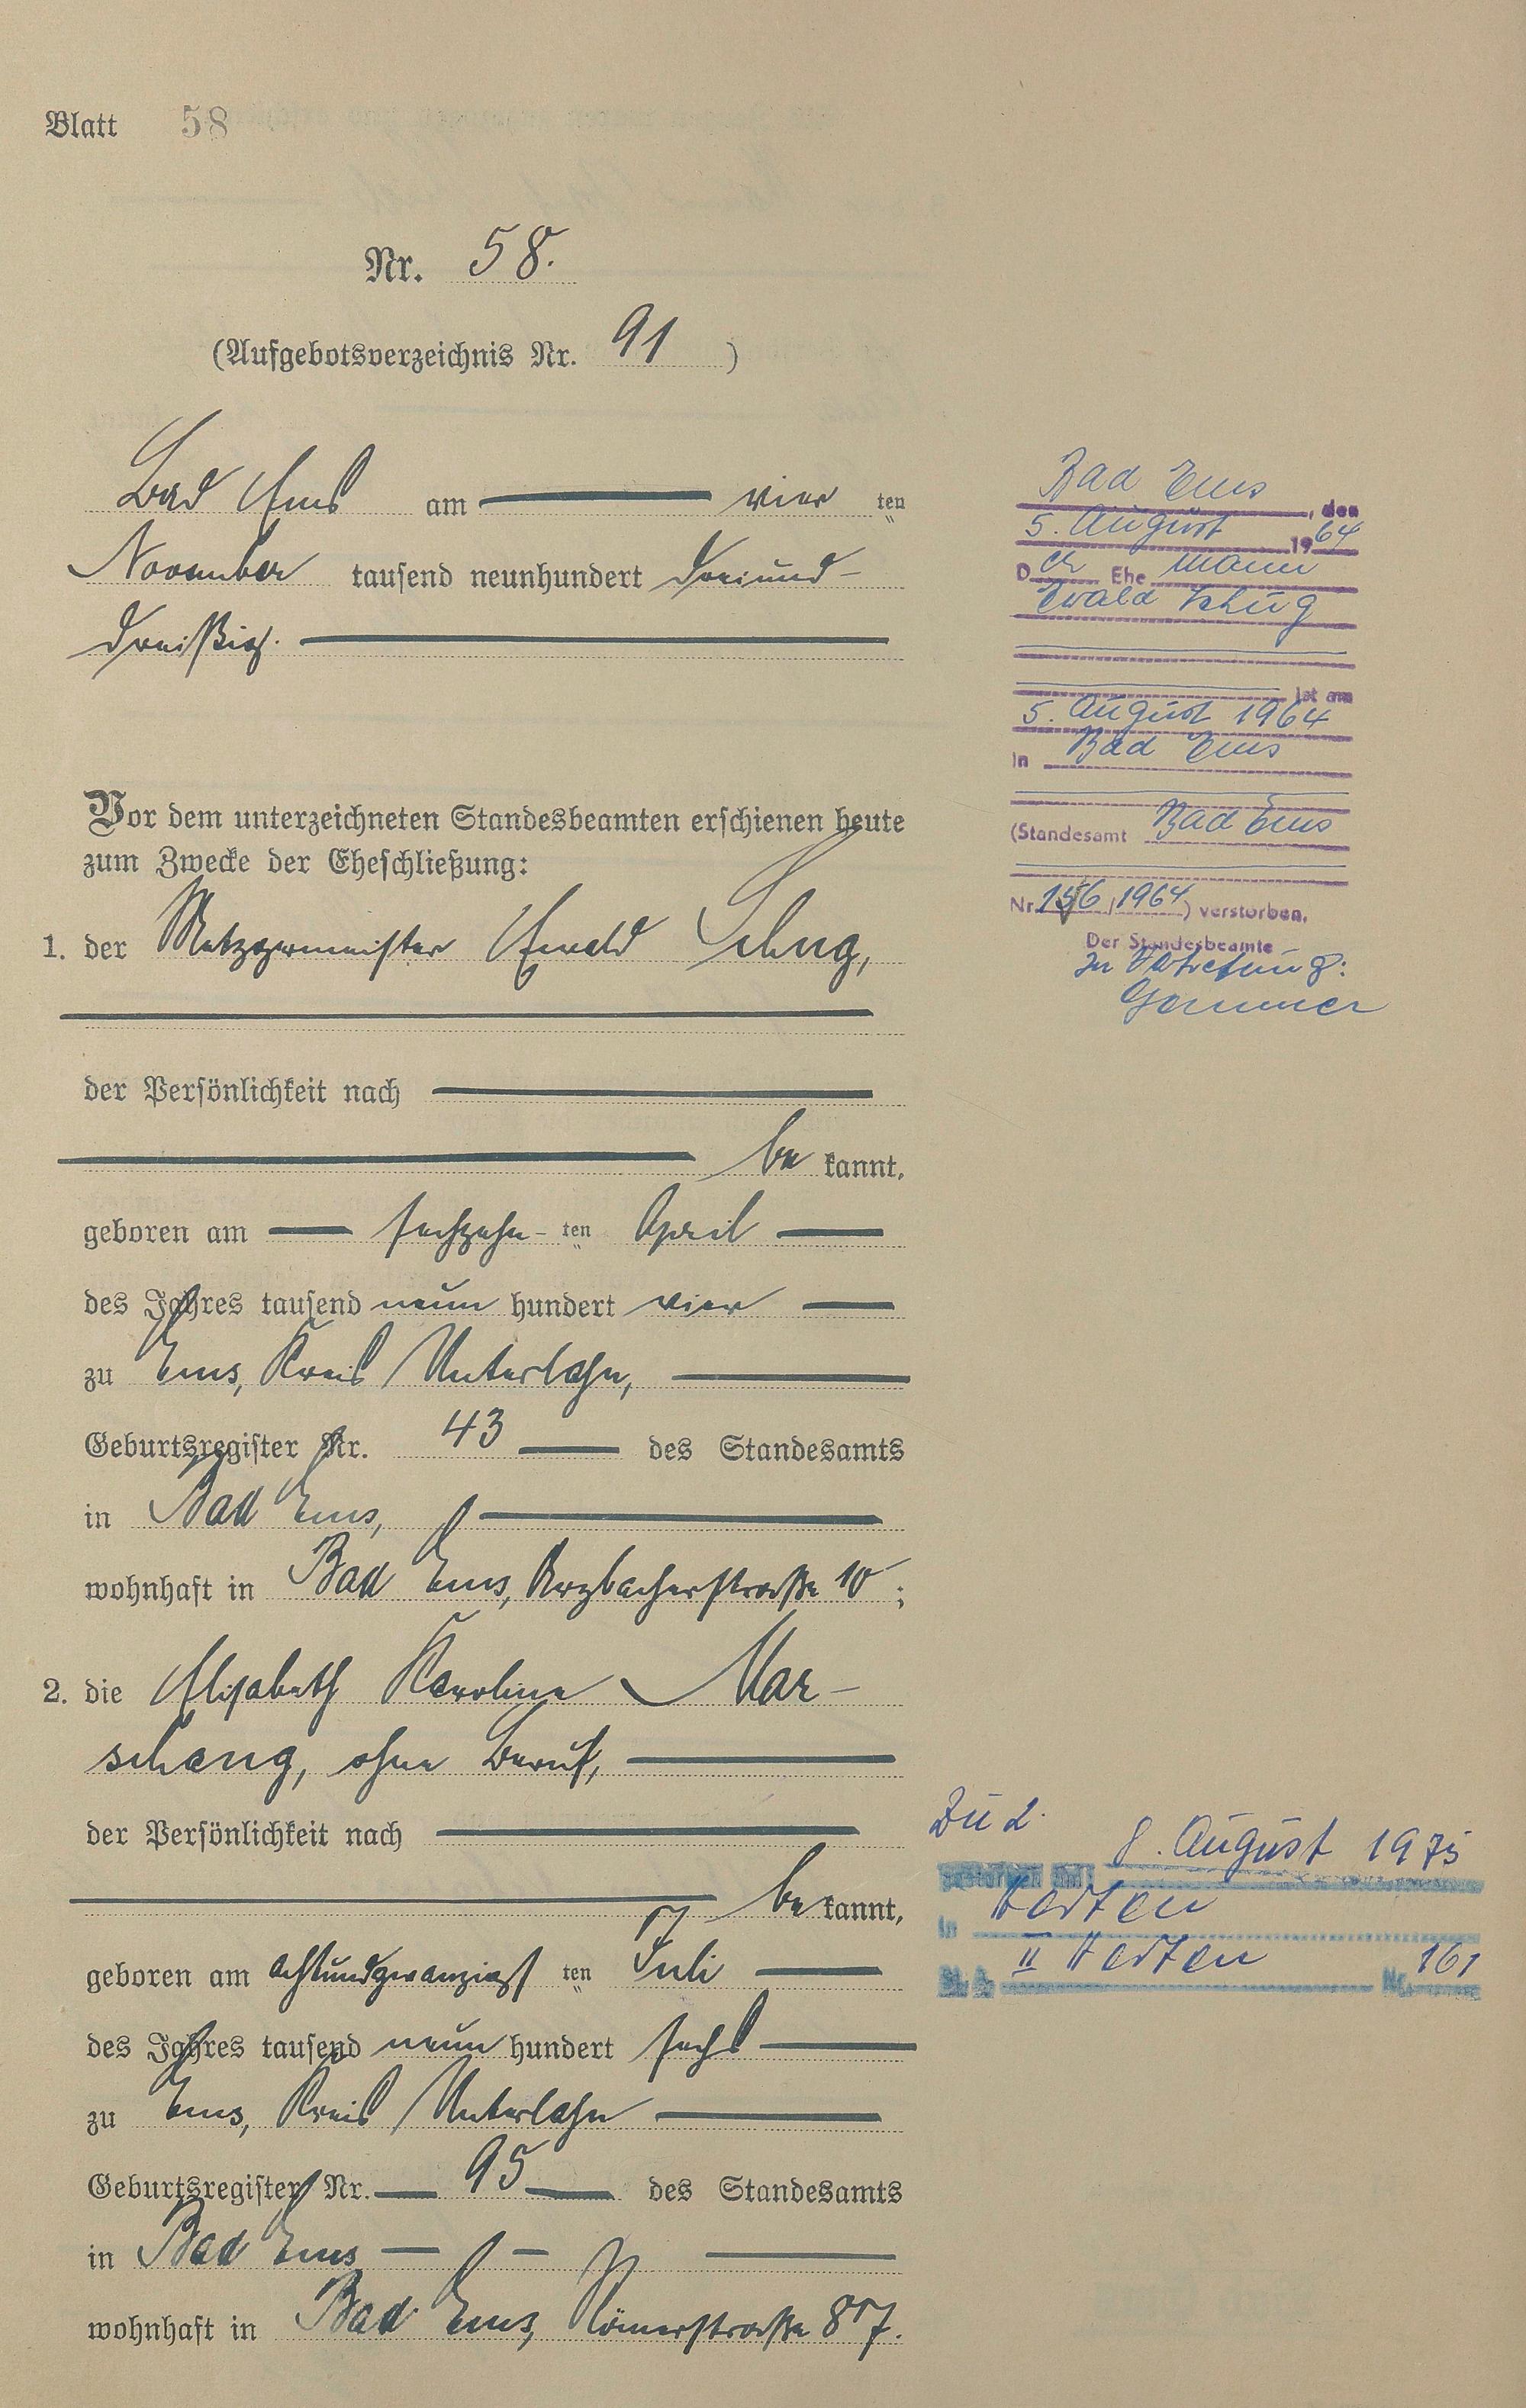 Blatt 58
Nr. 58.
(Aufgebotsverzeichnis Nr. 91 )
Bad Ems am vier ten
November tausend neunhundert dreiund-
dreißig.
Vor dem unterzeichneten Standesbeamten erschienen heute
zum Zwecke der Eheschließung:
1. der Metzgermeister Ewald Schug,
der Persönlichkeit nach
be kannt,
geboren am sechzehn- ten April
des Jahres tausend neun hundert vier
zu Ems, Kreis Unterlahn,
Geburtsregister Nr. 43 des Standesamts
in Bad Ems,
wohnhaft in Bad Ems, Arzbacherstraße 10 ;
2. die Elisabeth Karoline Mar-
schang, ohne Beruf,
der Persönlichkeit nach
be kannt,
geboren am achtundzwanzigst ten Juli
des Jahres tausend neun hundert sechs
zu Ems, Kreis Unterlahn
Geburtsregister Nr. 95 des Standesamts
in Bad Ems
wohnhaft in Bad Ems, Römerstraße 87.
Bad Ems , den
5. August 1964
Der Ehe mann
Ewald Schug
ist am
5. August 1964
in Bad Ems
(Standesamt Bad Ems
Nr. 156/1964) verstorben.
Der Standesbeamte
In Vertretung:
Zu 2.
gestorben am 8. August 1975
in Herten
St. A. II Herten Nr. 161